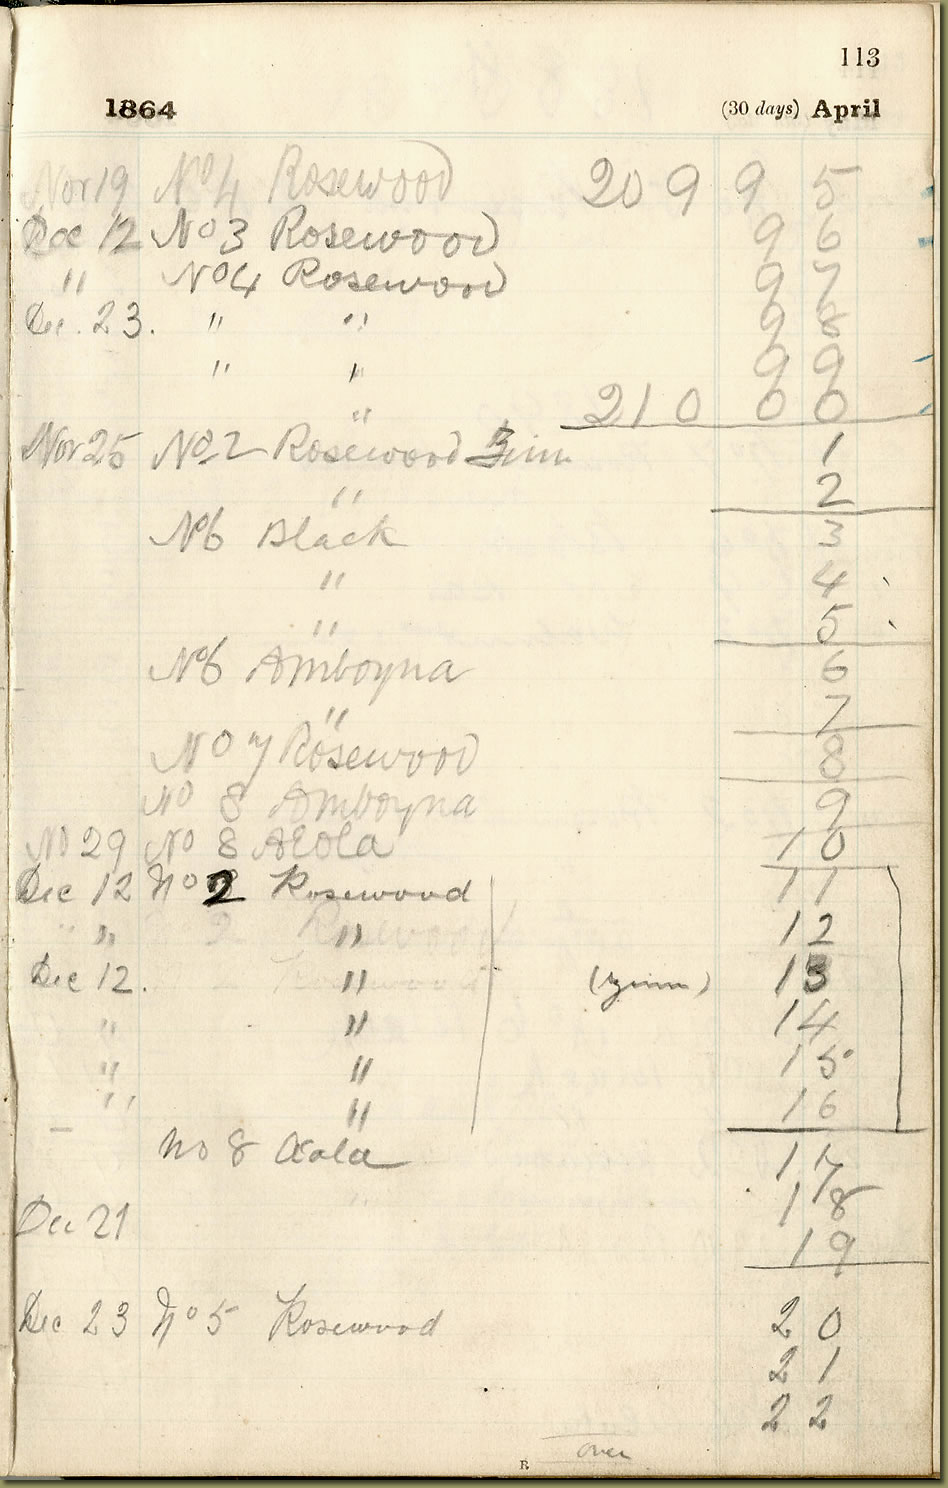 113
1864 (30 days) April
Nov 19 No 4 Rosewood 20 9 9 5
Dec 12 No 3 Rosewood 9 6
" No 4 Rosewood 9 7
Dec. 23. " " 9 8
" " 9 9
" 21 0 0 0
Nov 25 No 2 Rosewood 1
" 2
No 6 Black 3
" 4
" 5
No 6 Amboyna 6
" 7
No 7 Rosewood 8
No 8 Amboyna 9
No 29 No 8 Aeola 10
Dec 12 No 2 Rosewood 11
" " 2 Rosewood " 12
Dec 12. " 13
" " 14
" " 15
" " 16
No 8 Aeola 17
18
Dec 21 19
Dec 23 No 5 Rosewood 20
21
22
over
R